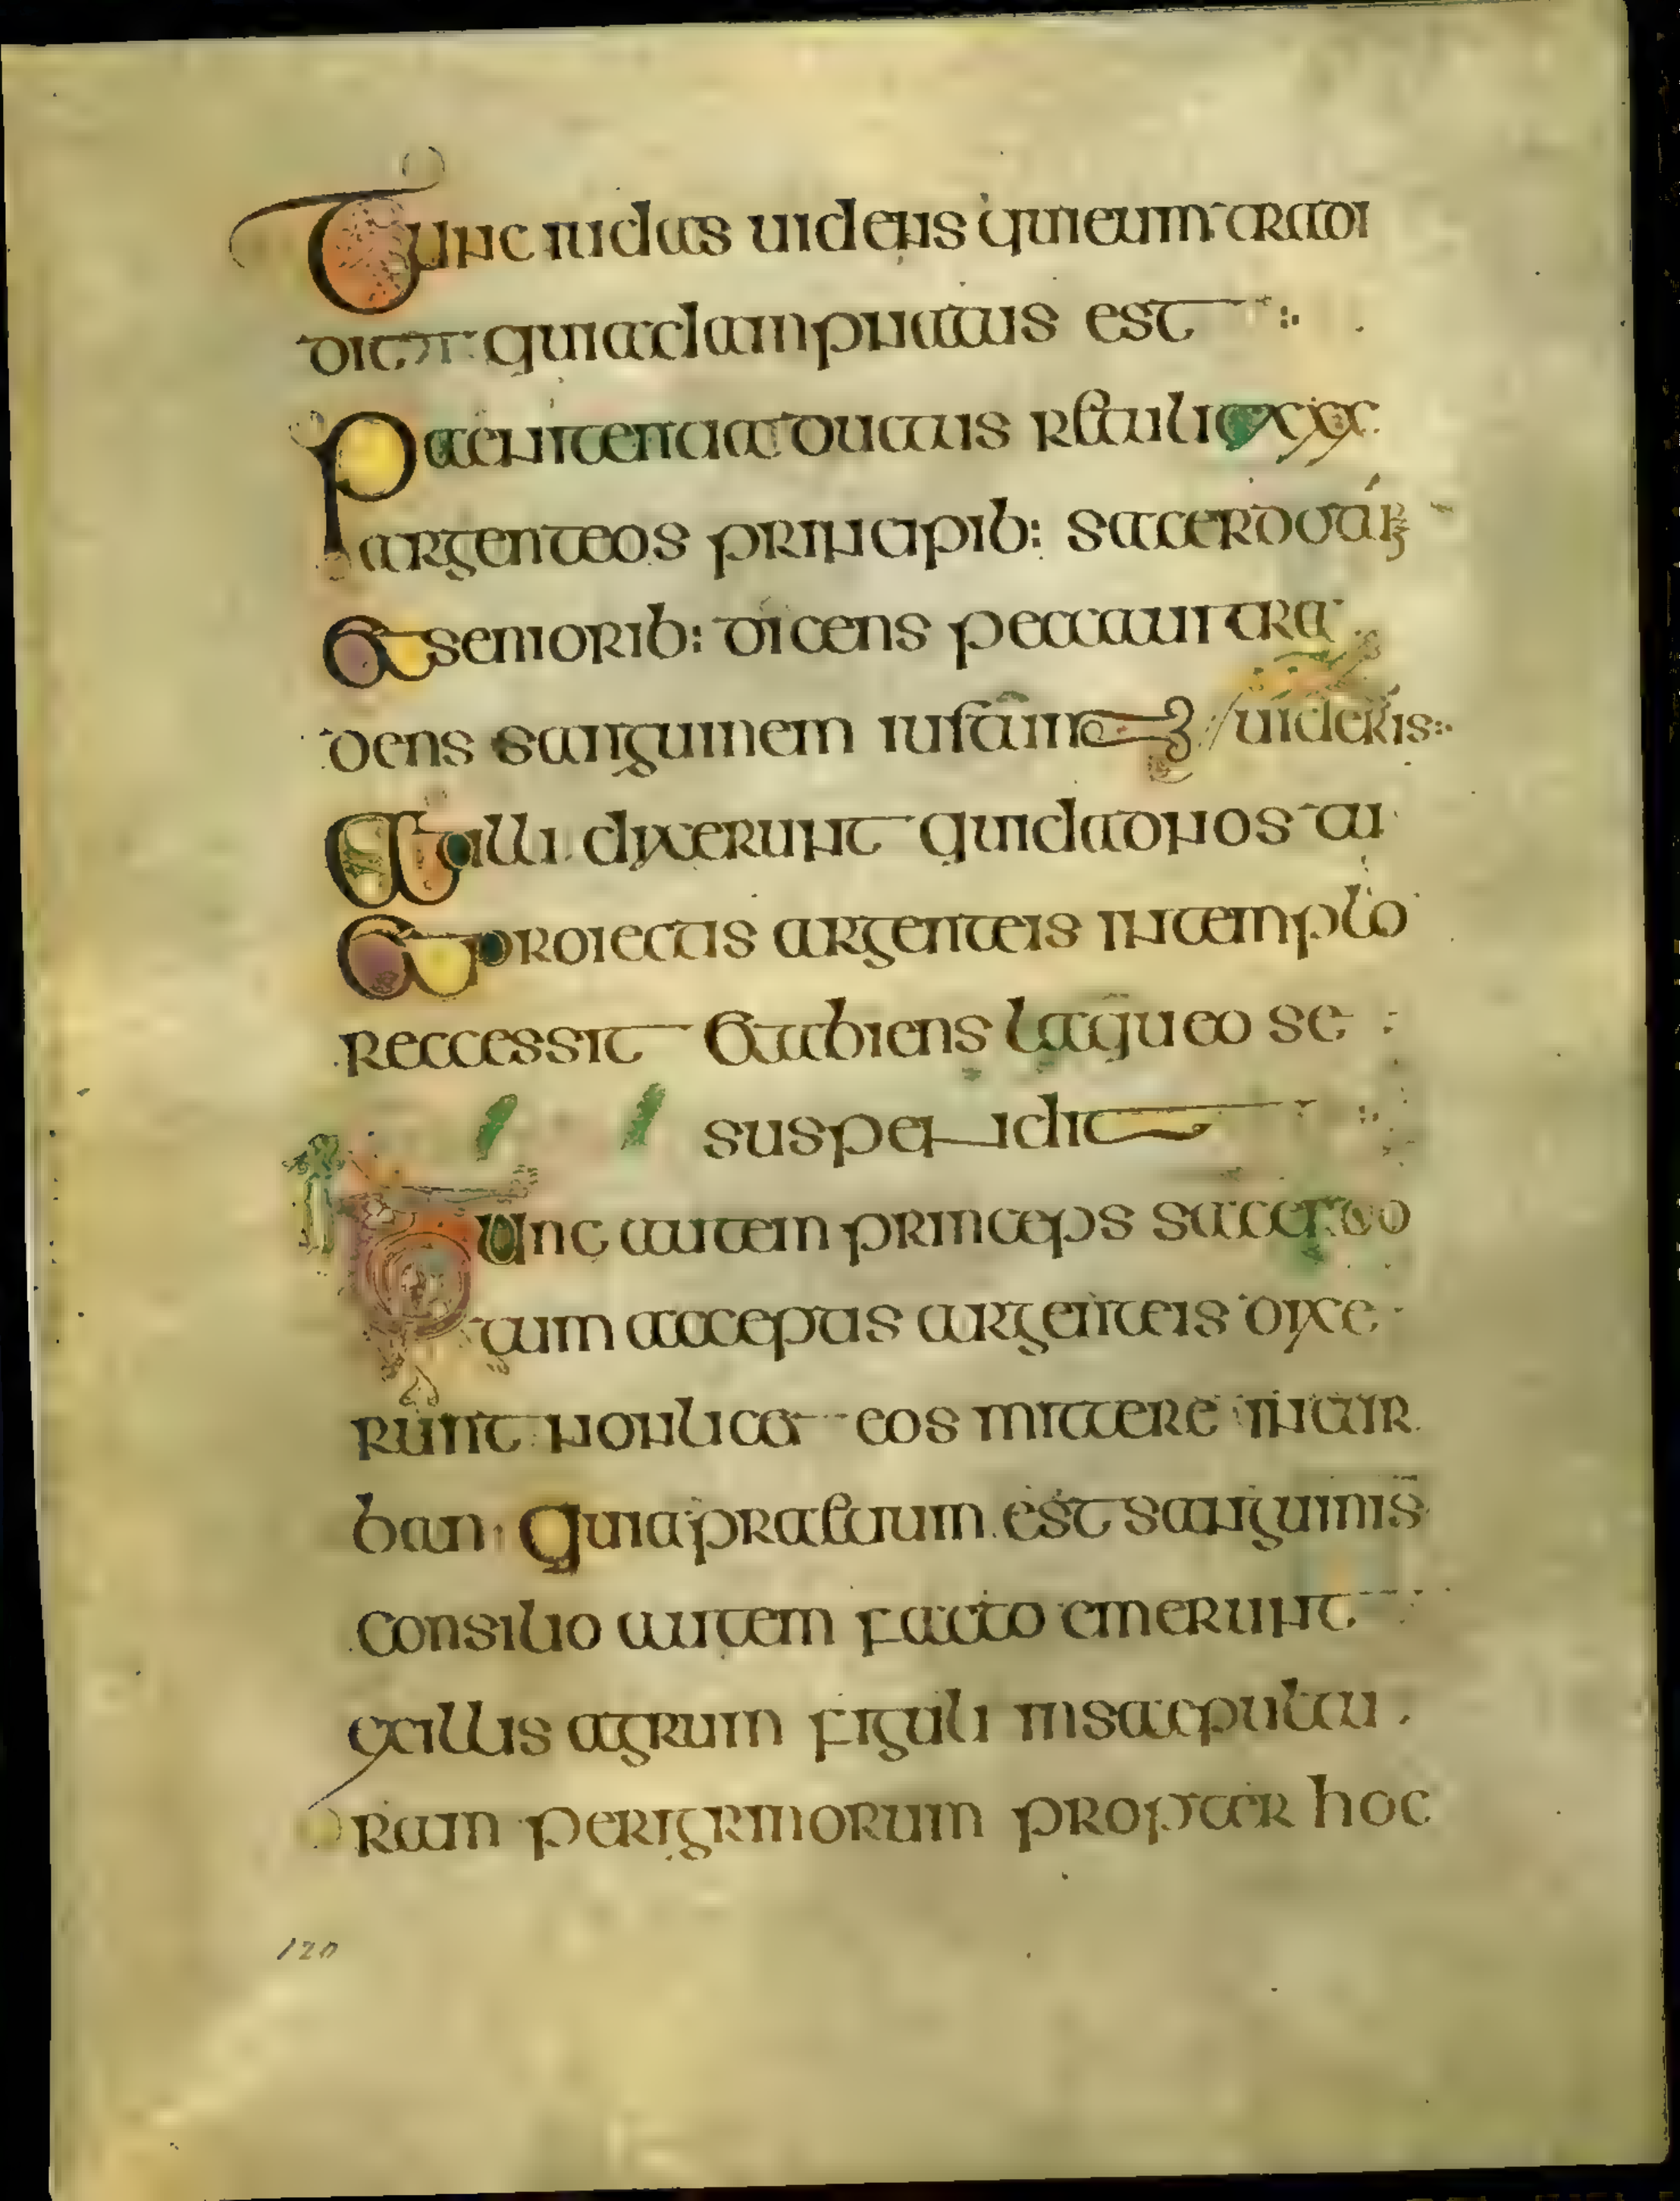 Tunc iudas uidens qui eum tradi
dit quia dampnatus est
Paenitentia ductus rettulit xxx
argenteos principib: sacerdotū
et seniorib: dicens peccaui tra
dens sanguinem iustum uideris:
At illi dixerunt quid ad nos tu
Et proiectis argenteis in templo
reccessit et abiens laqueo se
suspendit
Tunc autem princeps sacerdo
tum acceptis argenteis dixe
runt non licet eos mittere in cur
ban quia praetium est sanguinis
Consilio autem facto emerunt
ex illis agrum figuli in saepultu
ram perigrinorum propter hoc
120